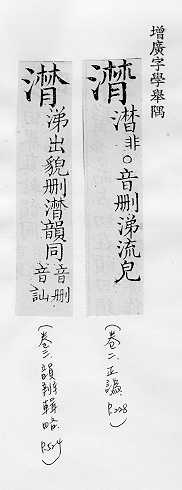 增廣字學舉隅
潸
潸非○音刪涕流皃
(卷二.正譌.P.228)
潸
涕出貌刪潸韻同音刪音訕
(卷三.韻辨輯略.P.524)